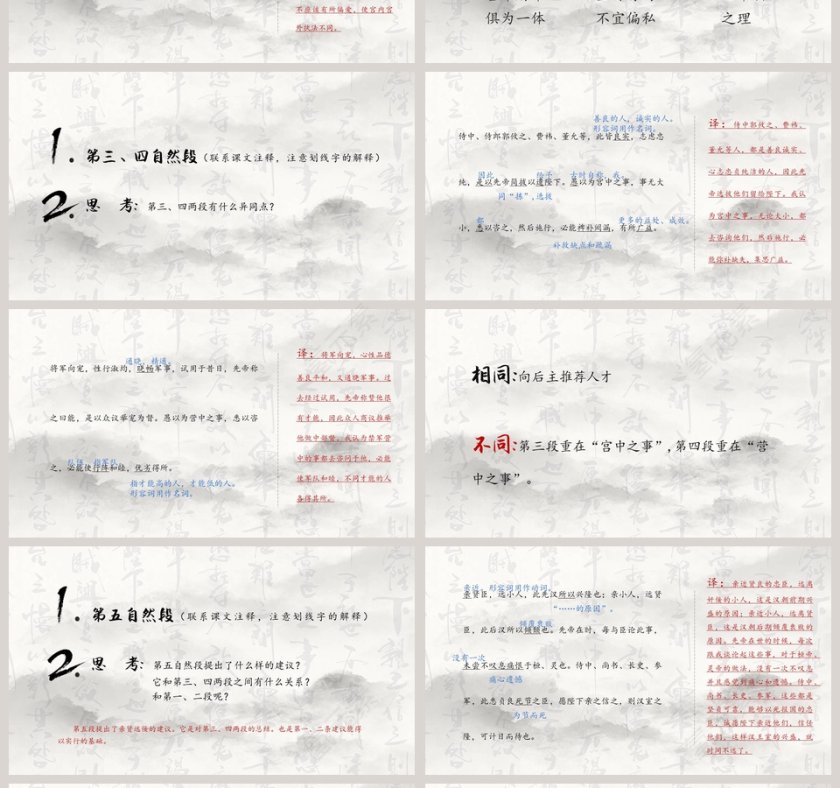 不应该有所偏爱，使宫内宫
外执法不同。
俱为一体 不宜偏私 之理
1. 第三、四自然段（联系课文注释，注意划线字的解释）
2. 思 考：第三、四两段有什么异同点？
善良的人，诚实的人。
形容词用作名词。
侍中、侍郎郭攸之、费祎、董允等，此皆良实，志虑忠
因此
给予
古时自称，我。
纯，是以先帝简拔以遗陛下。愚以为宫中之事，事无大
同“拣”，选拔
都
更多的益处、成效。
小，悉以咨之，然后施行，必能裨补阙漏，有所广益。
补救缺点和疏漏
译：侍中郭攸之、费祎、
董允等人，都是善良诚实、
心志忠贞纯洁的人，因此先
帝选拔他们留给陛下。我认
为宫中之事，无论大小，都
去咨询他们，然后施行，必
能弥补缺失，集思广益。
通晓，精通。
将军向宠，性行淑均，晓畅军事，试用于昔日，先帝称
之曰能，是以众议举宠为督。愚以为营中之事，悉以咨
队伍，指军队
之，必能使行阵和睦，优劣得所。
指才能高的人，才能低的人。
形容词用作名词。
译：将军向宠，心性品德
善良平和，又通晓军事，过
去经过试用，先帝称赞他很
有才能，因此众人商议推举
他做中部督。我认为禁军营
中的事都去咨问于他，必能
使军队和睦，不同才能的人
各得其所。
相同：向后主推荐人才
不同：第三段重在“宫中之事”，第四段重在“营
中之事”。
1. 第五自然段（联系课文注释，注意划线字的解释）
2. 思 考：第五自然段提出了什么样的建议？
它和第三、四两段之间有什么关系？
和第一、二段呢？
第五段提出了亲贤远佞的建议。它是对第三、四两段的总结。也是第一、二条建议能得
以实行的基础。
亲近，形容词用作动词。
亲贤臣，远小人，此先汉所以兴隆也；亲小人，远贤
“……的原因”。
倾覆衰败
臣，此后汉所以倾颓也。先帝在时，每与臣论此事，
没有一次
未尝不叹息痛恨于桓、灵也。侍中、尚书、长史、参
痛心遗憾
军，此悉贞良死节之臣，愿陛下亲之信之，则汉室之
为节而死
隆，可计日而待也。
译：亲近贤良的忠臣，远离
奸佞的小人，这是汉朝前期兴
盛的原因；亲近小人，远离贤
臣，这是汉朝后期倾覆衰败的
原因。先帝在世的时候，每次
跟我谈论起这些事，对于桓帝、
灵帝的做法，没有一次不叹息
并且感觉到痛心和遗憾。侍中、
尚书、长史、参军，这些都是
坚贞可靠，能够以死报国的忠
臣，诚愿陛下亲近他们，信任
他们，这样汉王室的兴盛，就
时间不远了。